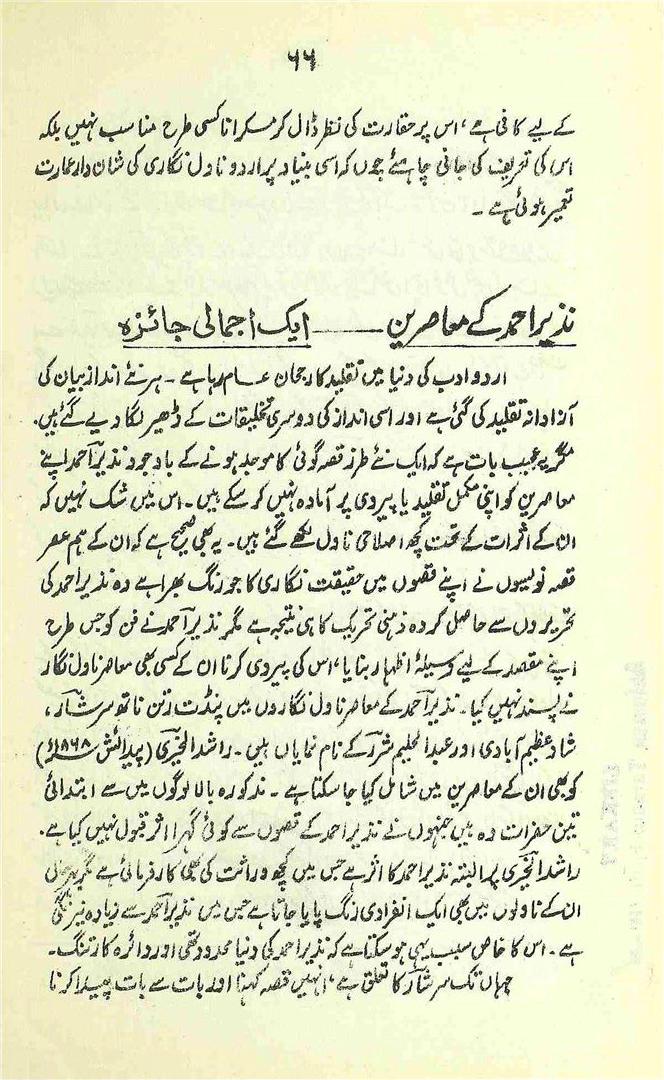 ۶۶
کے لیے کافی ہے، اس پر حقارت کی نظر ڈال کر مسکرانا کسی طرح مناسب نہیں بلکہ
اس کی تعریف کی جانی چاہئے چوں کہ اسی بنیاد پر اردو ناول نگاری کی شان دار عمارت
تعمیر ہوئی ہے ۔
نذیر احمد کے معاصرین —— ایک اجمالی جائزہ
اردو ادب کی دنیا میں تقلید کا رجحان عام رہا ہے ۔ ہر نئے انداز بیان کی
آزادانہ تقلید کی گئی ہے اور اسی انداز کی دوسری تخلیقات کے ڈھیر لگا دیے گئے ہیں.
مگر یہ عجیب بات ہے کہ ایک نئے طرز قصہ گوئی کا موجد ہونے کے باوجود نذیر آحمد اپنے
معاصرین کو اپنی مکمل تقلید یا پیروی پر آمادہ نہیں کر سکے ہیں ۔ اس میں شک نہیں کہ
ان کے اثرات کے تحت کچھ اصلاحی ناول لکھے گئے ہیں ۔ یہ بھی صحیح ہے کہ ان کے ہم عصر
قصہ نویسوں نے اپنے قصوں میں حقیقت نگاری کا جو رنگ بھرا ہے وہ نذیر احمد کی
تحریروں سے حاصل کردہ ذہنی تحریک کا ہی نتیجہ ہے مگر نذیر آحمد نے فن کو جس طرح
اپنے مقصد کے لیے وسیلۂ اظہار بنایا، اس کی پیروی کرنا ان کے کسی بھی معاصر ناول نگار
نے پسند نہیں کیا ۔ نذیر آحمد کے معاصر ناول نگاروں میں پنڈت رتن ناتھ سرشآر ،
شاد عظیم آبادی اور عبدالحلیم شرر کے نام نمایاں ہیں ۔ راشد الخیری (پیدائش ۱۸۶۸ء)
کو بھی ان کے معاصرین میں شامل کیا جا سکتا ہے ۔ مذکورہ بالا لوگوں میں سے ابتدائی
تین حضرات وہ ہیں جنہوں نے نذیر احمد کے قصوں سے کوئی گہرا اثر قبول نہیں کیا ہے.
راشد الخیری پر البتہ نذیر احمد کا اثر ہے جس میں کچھ وراثت کی بھی کارفرمائی ہے مگر بہرحال
ان کے ناولوں میں بھی ایک انفرادی رنگ پایا جاتا ہے جس میں نذیر آحمد سے زیادہ نیرنگی
ہے ۔ اس کا خاص سبب یہی ہو سکتا ہے کہ نذیر احمد کی دنیا محدود تھی اور دائرہ کار تنگ ۔
جہاں تک سرشآر کا تعلق ہے، انہیں قصہ کہنا اور بات سے بات پیدا کرنا